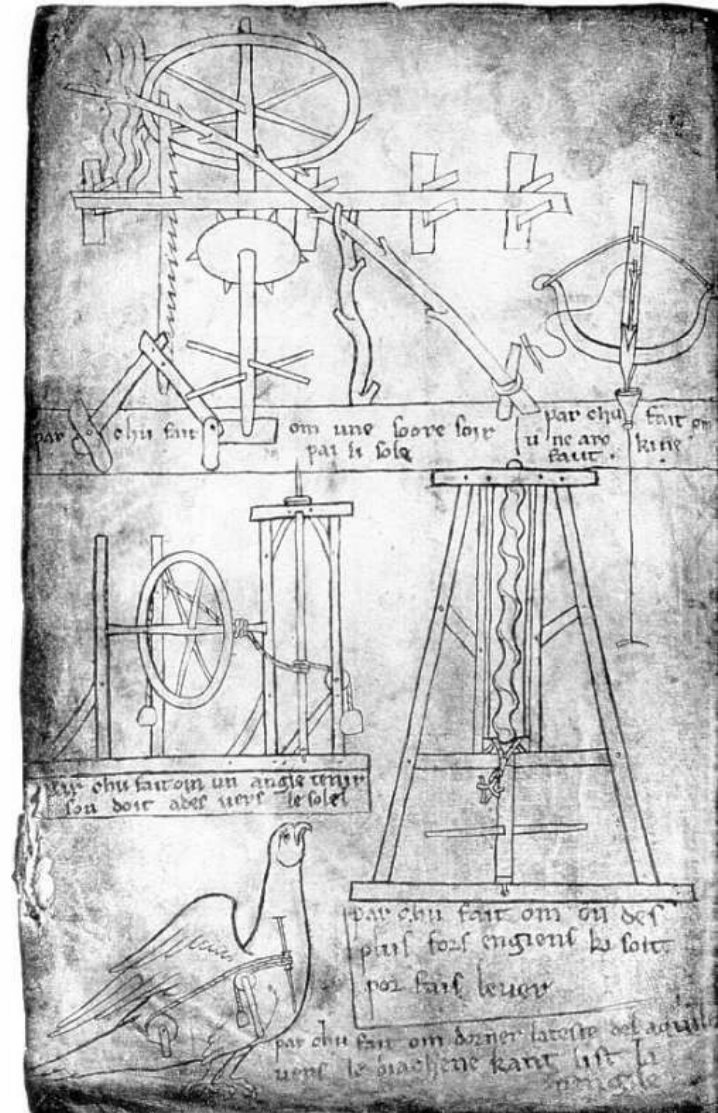 par chu fait om une soore soir
par li sole
par chu fait om
une arc ki ne
faut
par chu fait om un angle tenir
son doit ades vers le solel
par chu fait om on des
plus fors engiens ki soit
por fais lever
par chu fait om dorner la teste del aquile
vers le diachene kant list la
vengile